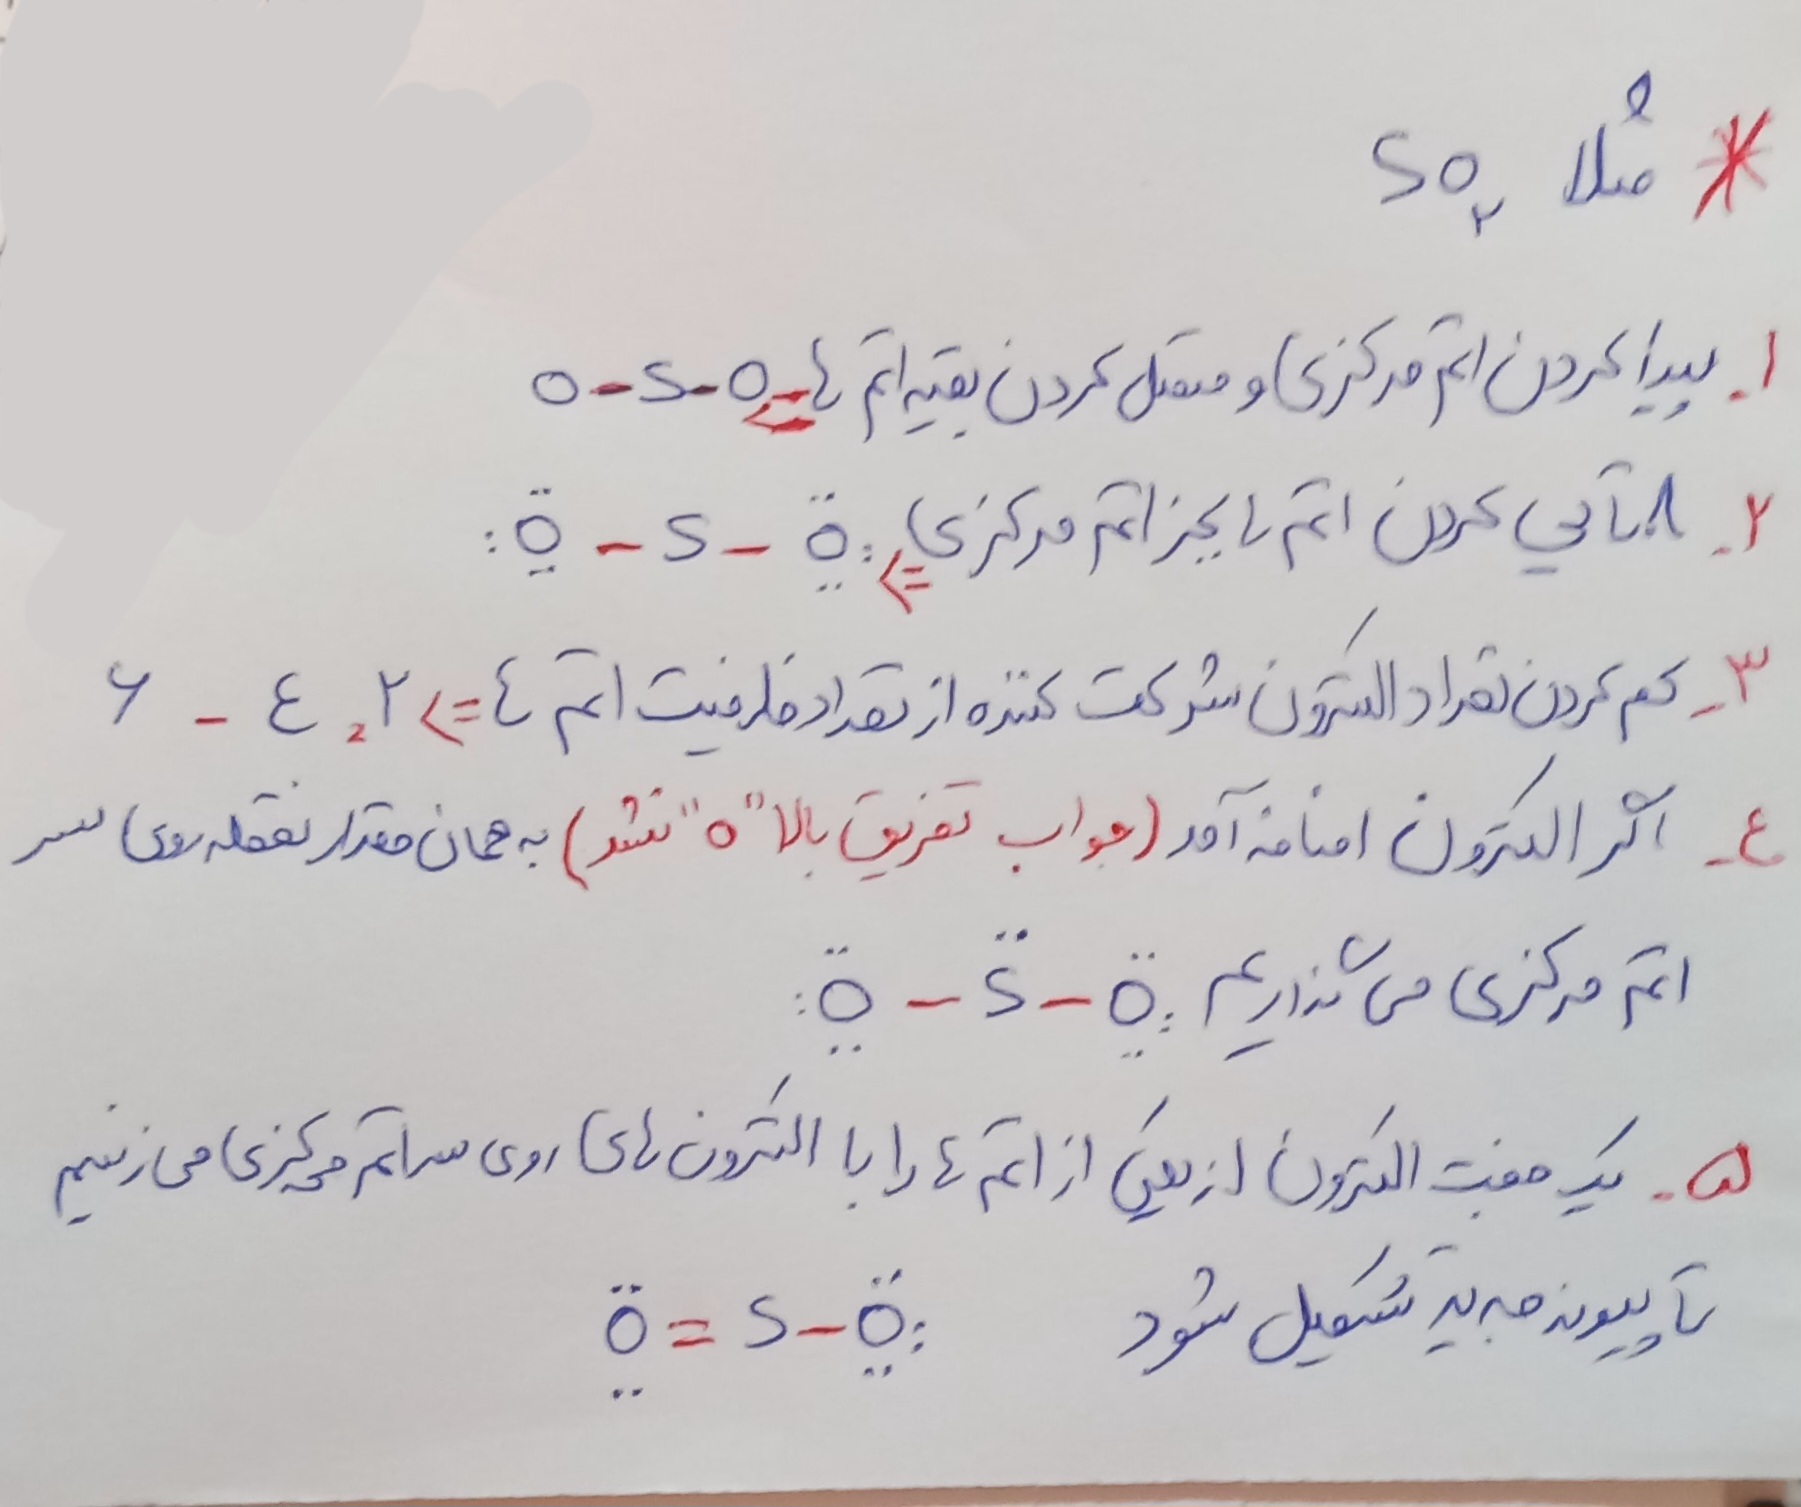 * مثلا SO۲
۱. پیدا کردن اتم مرکزی و متصل کردن بقیه اتم ها => O-S-O
۲. ۸ تایی کردن اتم ها بجز اتم مرکزی => :Ö̤ - S - Ö̤:
۳- کم کردن تعداد الکترون شرکت کننده از تعداد ظرفیت اتم ها => ۶ - ۴ = ۲
۴- اگر الکترون اضافه آمد (جواب تفریق بالا "۰" نشد) به همان مقدار نقطه روی سر
اتم مرکزی می گذاریم :Ö̤ - S̈ - Ö̤:
۵. یک جفت الکترون از یکی از اتم ها را با الکترون های روی سر اتم مرکزی می زنیم
تا پیوند جدید تشکیل شود Ö̤ = S - Ö̤: